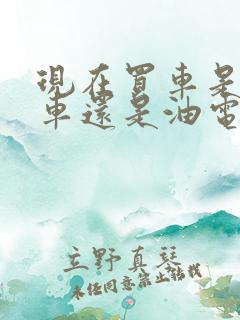 現在買車是
車還是油電
立野真琴
未经同意禁止转载